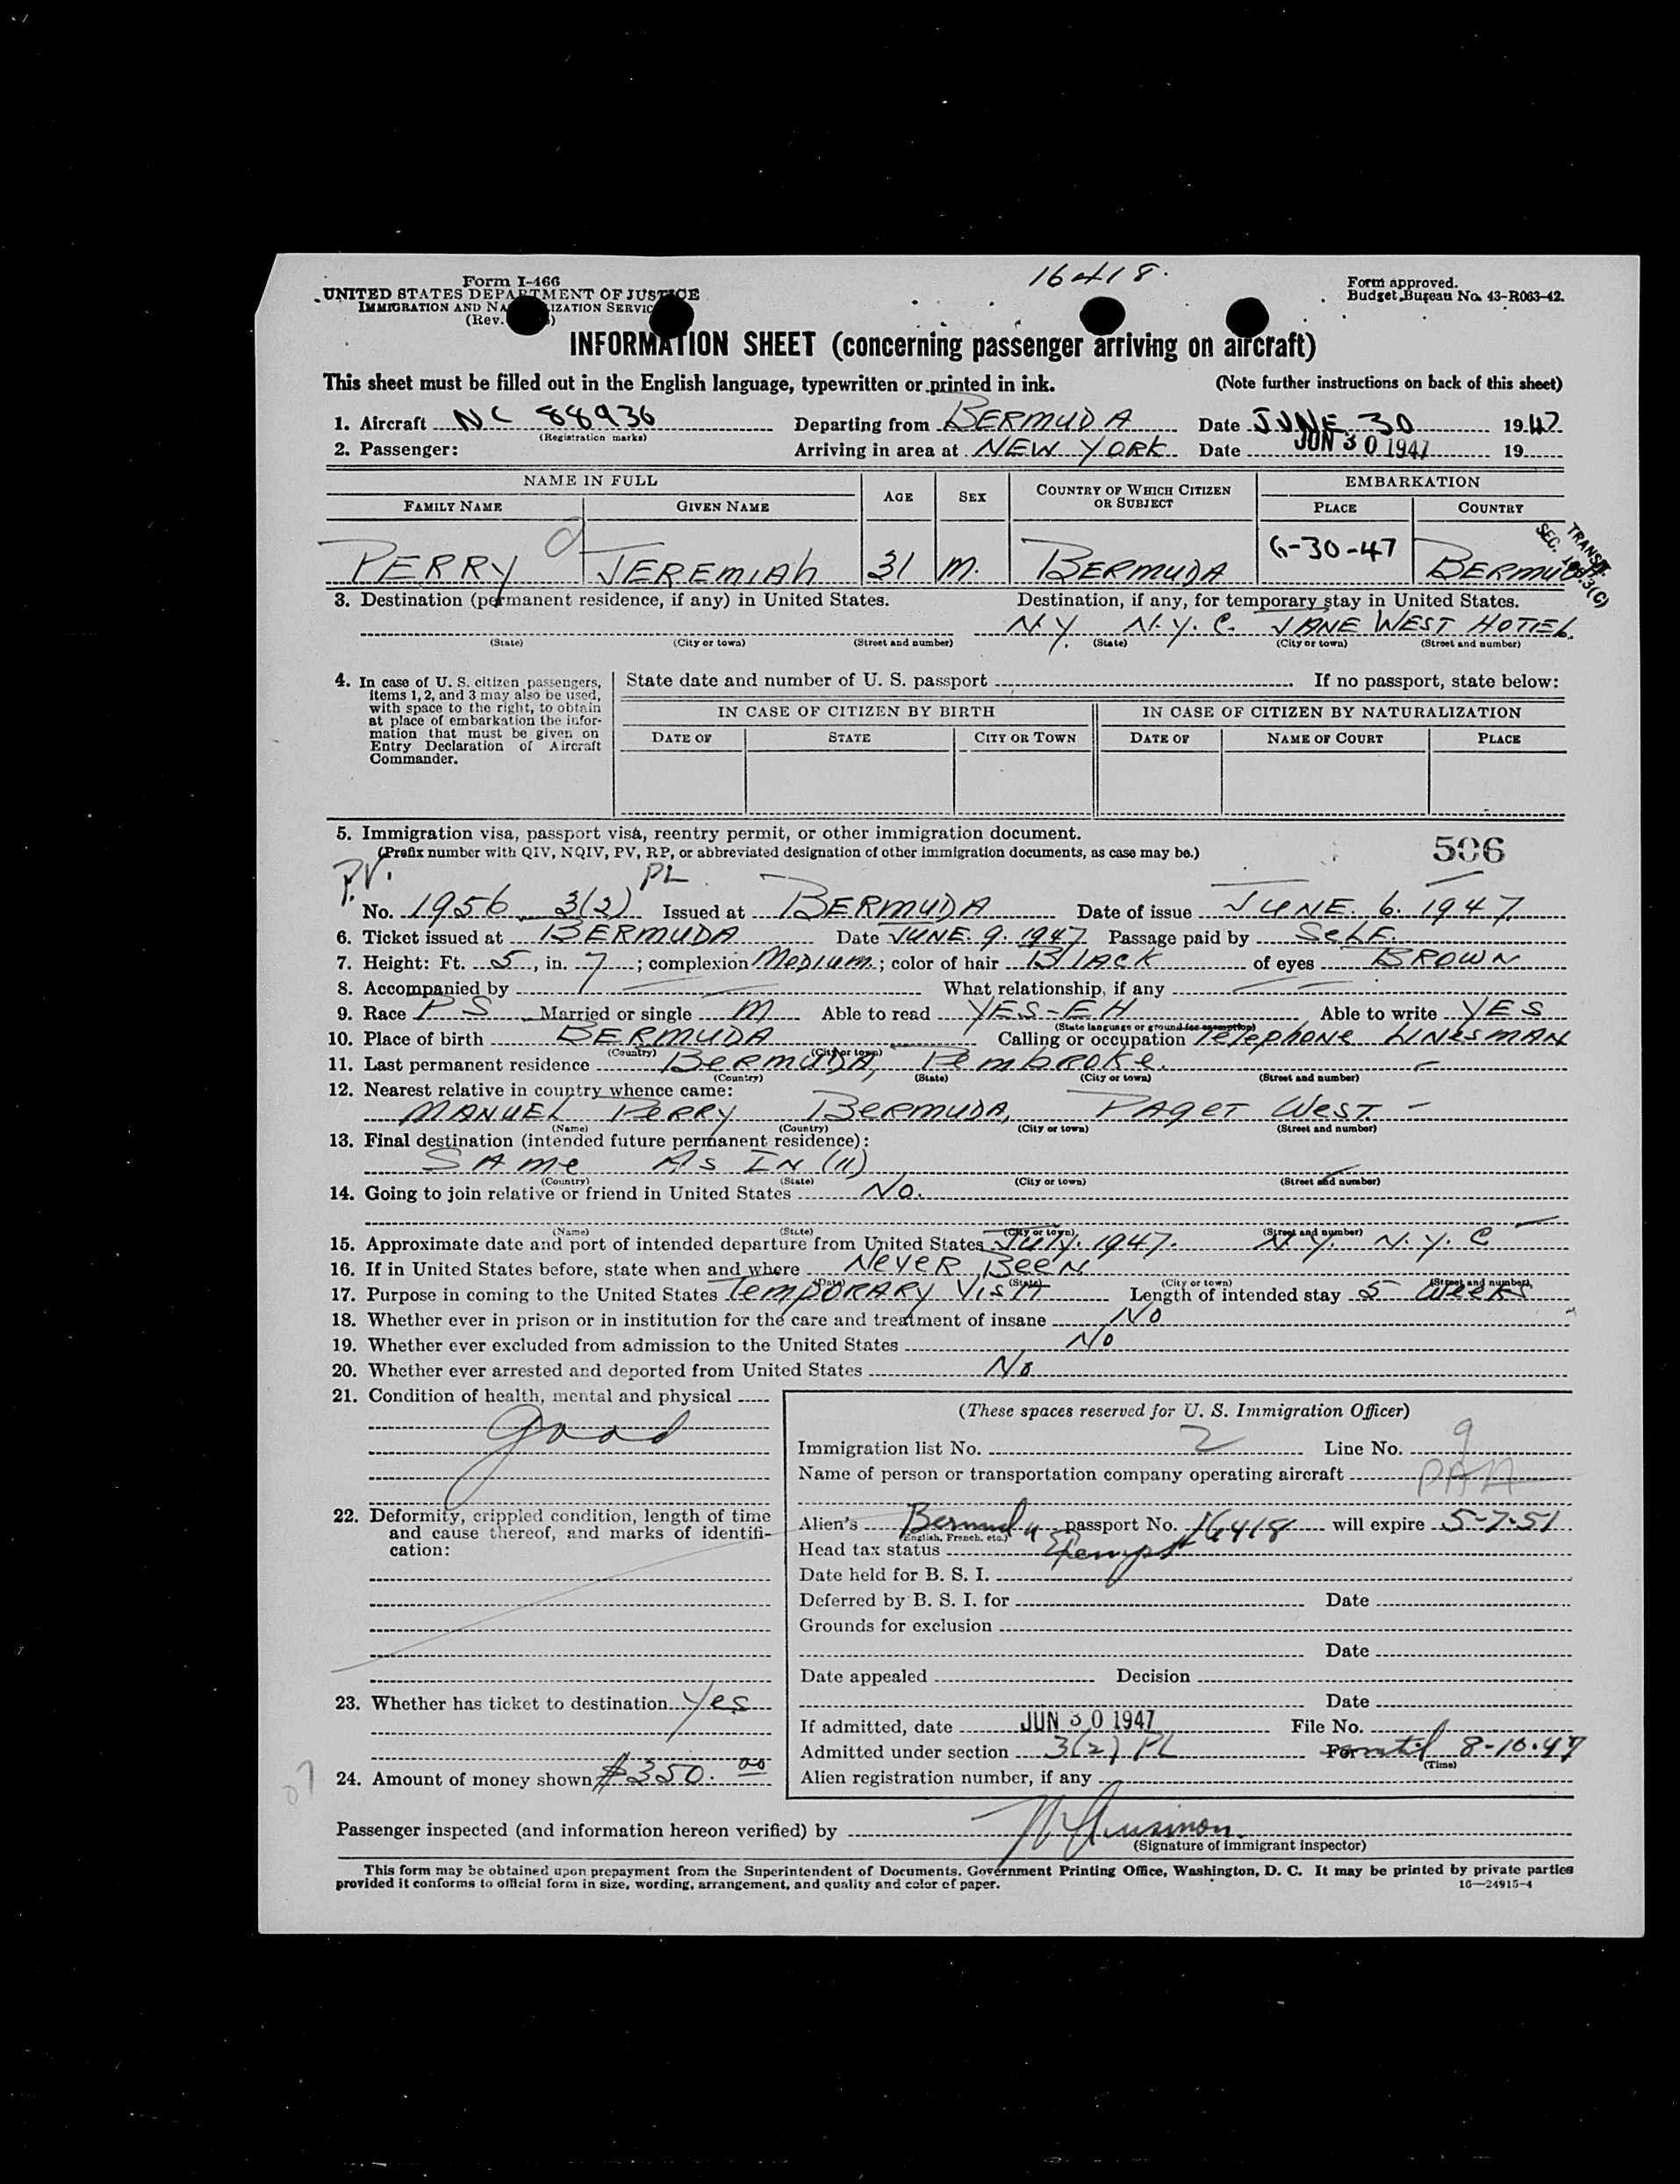 Form I-466
UNITED STATES DEPARTMENT OF JUSTICE
IMMIGRATION AND NATURALIZATION SERVICE
(Rev.
16418.
Form approved.
Budget Bureau No. 43-R063-42.
INFORMATION SHEET (concerning passenger arriving on aircraft)
This sheet must be filled out in the English language, typewritten or printed in ink. (Note further instructions on back of this sheet)
1. Aircraft NC 88936 Departing from BERMUDA Date JUNE 30 1947
(Registration marks)
2. Passenger: Arriving in area at NEW YORK Date JUN 30 1947 19
NAME IN FULL AGE SEX COUNTRY OF WHICH CITIZEN OR SUBJECT EMBARKATION
FAMILY NAME GIVEN NAME PLACE COUNTRY
PERRY JEREMIAh 31 M. BERMUDA 6-30-47 BERMUDA
TRANSIT
3. Destination (permanent residence, if any) in United States. Destination, if any, for temporary stay in United States.
N.Y. N.Y.C. JANE WEST HOTEL
(State) (City or town) (Street and number) (State) (City or town) (Street and number)
4. In case of U. S. citizen passengers, items 1, 2, and 3 may also be used, with space to the right, to obtain at place of embarkation the information that must be given on Entry Declaration of Aircraft Commander.
State date and number of U. S. passport If no passport, state below:
IN CASE OF CITIZEN BY BIRTH IN CASE OF CITIZEN BY NATURALIZATION
DATE OF STATE CITY OR TOWN DATE OF NAME OF COURT PLACE
5. Immigration visa, passport visa, reentry permit, or other immigration document.
(Prefix number with QIV, NQIV, PV, RP, or abbreviated designation of other immigration documents, as case may be.)
506
P.V. PL
No. 1956 3(2) Issued at BERMUDA Date of issue JUNE. 6. 1947
6. Ticket issued at BERMUDA Date JUNE. 9. 1947 Passage paid by SeLF.
7. Height: Ft. 5, in. 7; complexion MeDIum.; color of hair BlACK of eyes BROWN
8. Accompanied by What relationship, if any
9. Race P S Married or single M Able to read YES-EH Able to write YES
(State language or ground for exemption)
10. Place of birth BERMUDA Calling or occupation TelephONe LINesMAN
(Country) (City or town)
11. Last permanent residence BeRMUDA, PembROKe.
(Country) (State) (City or town) (Street and number)
12. Nearest relative in country whence came:
MANUEL PeRRy BeRMUDA, PAGeT WeST. -
(Name) (Country) (City or town) (Street and number)
13. Final destination (intended future permanent residence):
SAme As IN (11)
(Country) (State) (City or town) (Street and number)
14. Going to join relative or friend in United States No.
(Name) (State) (City or town) (Street and number)
15. Approximate date and port of intended departure from United States JUly. 1947. N.Y. N.Y.C
16. If in United States before, state when and where NeveR BeeN
(Date) (State) (City or town) (Street and number)
17. Purpose in coming to the United States TempORARy VisiT Length of intended stay 5 WeeKS
18. Whether ever in prison or in institution for the care and treatment of insane No
19. Whether ever excluded from admission to the United States No
20. Whether ever arrested and deported from United States No
21. Condition of health, mental and physical
good
22. Deformity, crippled condition, length of time and cause thereof, and marks of identification:
23. Whether has ticket to destination Yes
24. Amount of money shown $350.00
(These spaces reserved for U. S. Immigration Officer)
Immigration list No. 2 Line No. 9
Name of person or transportation company operating aircraft PAA
Alien's Bermuda passport No. 16418 will expire 5-7-51
(English, French, etc.)
Head tax status Exempt
Date held for B. S. I.
Deferred by B. S. I. for Date
Grounds for exclusion
Date
Date appealed Decision
Date
If admitted, date JUN 30 1947 File No.
Admitted under section 3(2) PL For until 8-10-47
(Time)
Alien registration number, if any
Passenger inspected (and information hereon verified) by
(Signature of immigrant inspector)
This form may be obtained upon prepayment from the Superintendent of Documents, Government Printing Office, Washington, D. C. It may be printed by private parties
provided it conforms to official form in size, wording, arrangement, and quality and color of paper. 16—24915-4